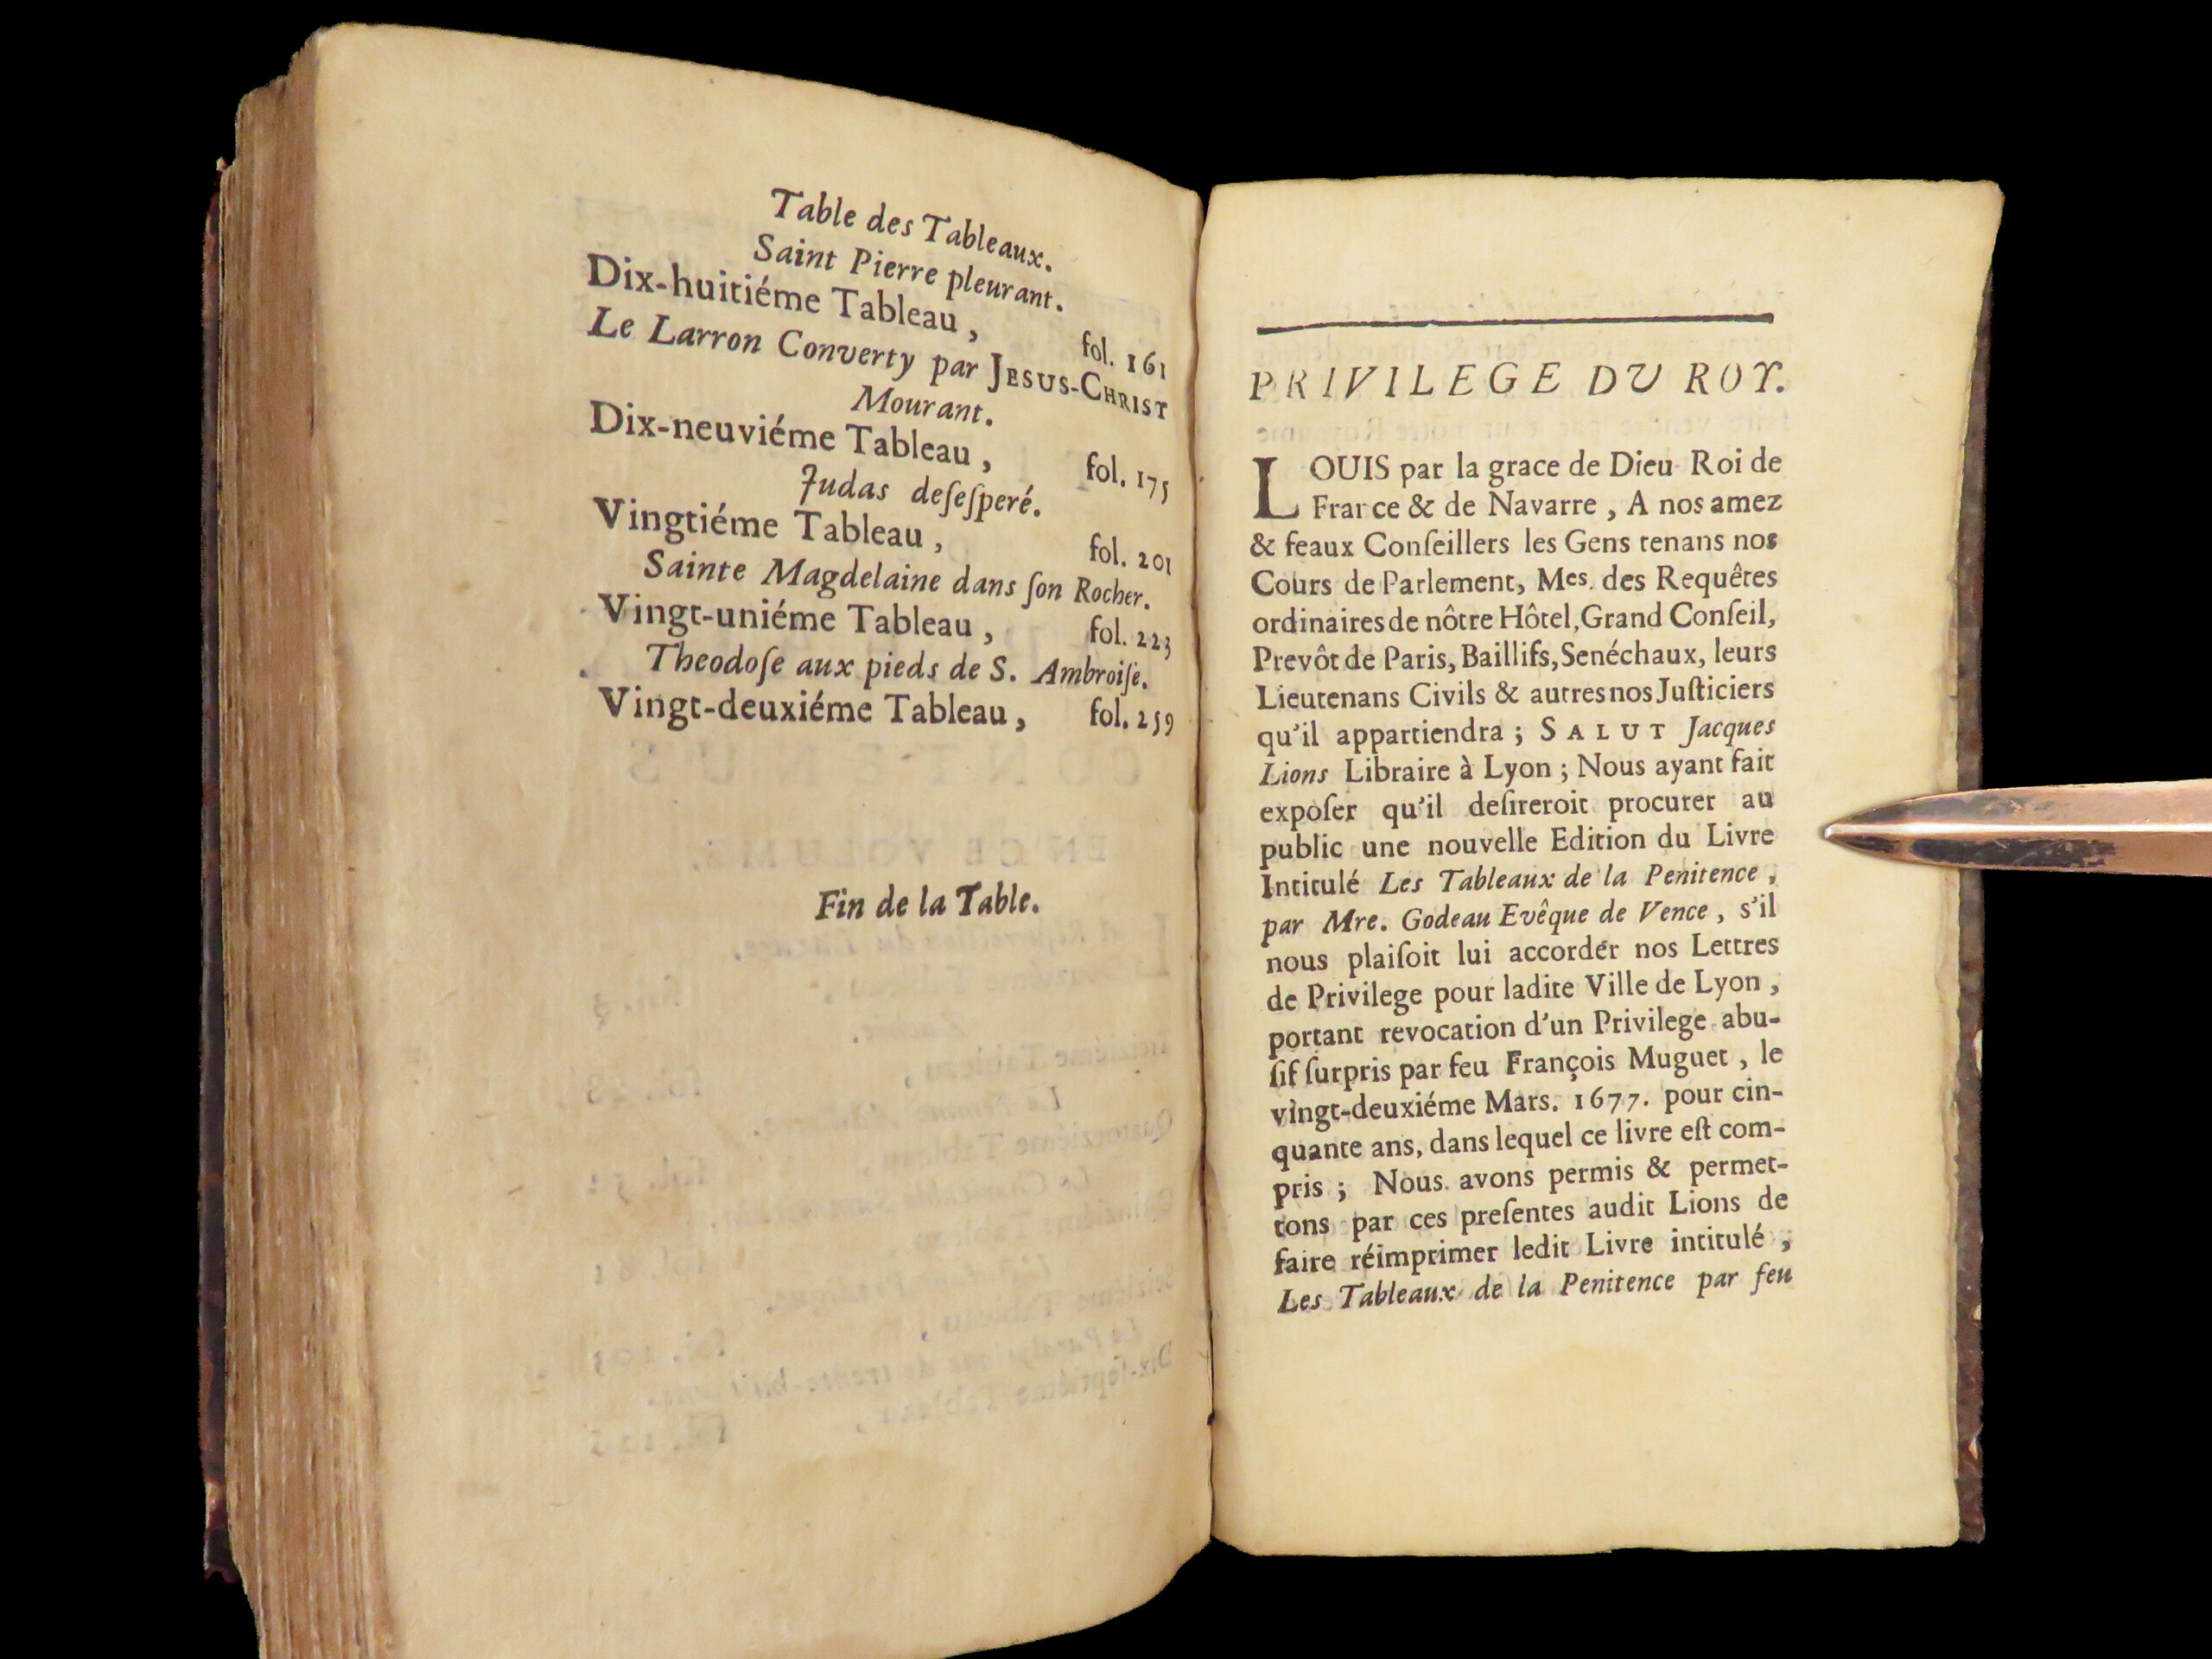 Table des Tableaux.
Saint Pierre pleurant.
Dix-huitiéme Tableau , fol. 161
Le Larron Converty par JESUS-CHRIST
Mourant.
Dix-neuviéme Tableau , fol. 175
Judas deſeſperé.
Vingtiéme Tableau , fol. 201
Sainte Magdelaine dans ſon Rocher.
Vingt-uniéme Tableau , fol. 223
Theodoſe aux pieds de S. Ambroiſe.
Vingt-deuxiéme Tableau , fol. 259
Fin de la Table.
PRIVILEGE DU ROY.
LOUIS par la grace de Dieu Roi de
France & de Navarre , A nos amez
& feaux Conſeillers les Gens tenans nos
Cours de Parlement, Mes. des Requêtes
ordinaires de nôtre Hôtel, Grand Conſeil,
Prevôt de Paris, Baillifs, Senéchaux, leurs
Lieutenans Civils & autres nos Juſticiers
qu'il appartiendra ; SALUT Jacques
Lions Libraire à Lyon ; Nous ayant fait
expoſer qu'il deſireroit procurer au
public une nouvelle Edition du Livre
Intitulé Les Tableaux de la Penitence ,
par Mre. Godeau Evêque de Vence , s'il
nous plaiſoit lui accordér nos Lettres
de Privilege pour ladite Ville de Lyon ,
portant revocation d'un Privilege abu-
ſif ſurpris par feu François Muguet , le
vingt-deuxiéme Mars. 1677. pour cin-
quante ans, dans lequel ce livre eſt com-
pris ; Nous. avons permis & permet-
tons par ces preſentes audit Lions de
faire réimprimer ledit Livre intitulé ,
Les Tableaux de la Penitence par feu